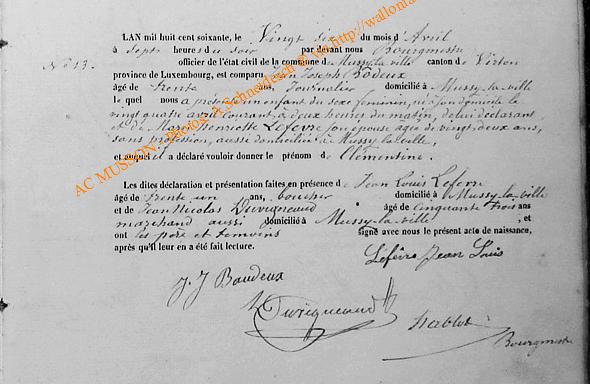 LAN mil huit cent soixante, le Vingt six du mois d'Avril
à Sept heures du soir par devant nous Bourgmestre
officier de l'état civil de la commune de Mussy-la-ville canton de Virton
N° 13.
province de Luxembourg, est comparu Jean Joseph
âgé de trente ans, Journalier domicilié à Mussy-la-ville
lequel nous a présenté un enfant du sexe féminin, né à son domicile le
vingt quatre avril courant à deux heures du matin, de lui déclarant
et de Marie Henriette Lefevre son épouse agée de vingt deux ans,
sans profession, aussi domiciliée à Mussy-la-ville,
et auquel il a déclaré vouloir donner le prénom de Clémentine.
Les dites déclaration et présentation faites en présence de Jean Louis Lefevre
âgé de trente un ans, boucher domicilié à Mussy-la-ville
et de Jean Nicolas Duvigneaud âgé de cinquante trois ans
marchand aussi domicilié à Mussy-la-ville ; et
ont les père et temoins signé avec nous le présent acte de naissance,
après qu'il leur en a été fait lecture.
Lefèvre Jean Louis
J. J Baudeux
Duvigneaud
Bourgmestre
AC MUSSON - Photos A.Schneidesch